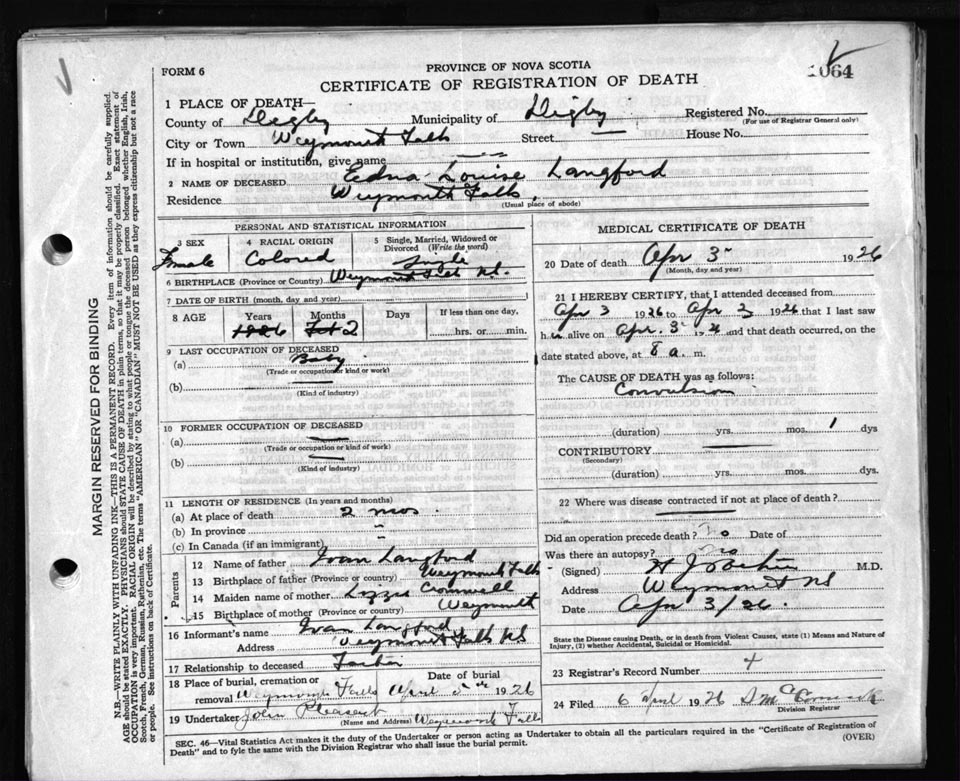 PROVINCE OF NOVA SCOTIA
FORM 6
1064
CERTIFICATE OF REGISTRATION OF DEATH
1 PLACE OF DEATH—
County of Digby Municipality of Digby Registered No.
(For use of Registrar General only)
City or Town Weymouth Falls Street — House No.
If in hospital or institution, give name
2 NAME OF DECEASED Edna Louise Langford
Residence Weymouth Falls.
(Usual place of abode)
PERSONAL AND STATISTICAL INFORMATION
3 SEX 4 RACIAL ORIGIN 5 Single, Married, Widowed or Divorced (Write the word)
Female Colored Single
6 BIRTHPLACE (Province or Country) Weymouth Falls N.S.
7 DATE OF BIRTH (month, day and year)
8 AGE Years Months Days If less than one day,
1926 Feb 2 hrs. or min.
9 LAST OCCUPATION OF DECEASED
(a) Baby
(Trade or occupation or kind or work)
(b)
(Kind of industry)
10 FORMER OCCUPATION OF DECEASED
(a)
(Trade or occupation or kind or work)
(b)
(Kind of industry)
11 LENGTH OF RESIDENCE (In years and months)
(a) At place of death 2 mos
(b) In province "
(c) In Canada (if an immigrant)
Parents
12 Name of father Ivan Langford
13 Birthplace of father (Province or country) Weymouth Falls
14 Maiden name of mother Lizzie Cromwell
15 Birthplace of mother (Province or country) Weymouth
16 Informant's name Ivan Langford
Address Weymouth Falls NS
17 Relationship to deceased Father
18 Place of burial, cremation or Date of burial
removal Weymouth Falls April 5th 1926
19 Undertaker John Pleasant
(Name and Address) Weymouth Falls
MEDICAL CERTIFICATE OF DEATH
20 Date of death Apr 3 1926
(Month, day and year)
21 I HEREBY CERTIFY, that I attended deceased from
Apr 3 1926 to Apr 3 1926 that I last saw
h alive on Apr. 3 1926 and that death occurred, on the
date stated above, at 8 a. m.
The CAUSE OF DEATH was as follows:
Convulsion
(duration) yrs. mos. 1 dys
CONTRIBUTORY
(Secondary)
(duration) yrs. mos. dys.
22 Where was disease contracted if not at place of death?
Did an operation precede death? no Date of
Was there an autopsy? no
(Signed) H J M.D.
Address Weymouth NS
Date Apr 3/26.
State the Disease causing Death, or in death from Violent Causes, state (1) Means and Nature of
Injury, (2) whether Accidental, Suicidal or Homicidal.
23 Registrar's Record Number 4
24 Filed 6 April 1926
Division Registrar
SEC. 46—Vital Statistics Act makes it the duty of the Undertaker or person acting as Undertaker to obtain all the particulars required in the "Certificate of Registration of
Death" and to fyle the same with the Division Registrar who shall issue the burial permit. (OVER)
MARGIN RESERVED FOR BINDING
N.B.—WRITE PLAINLY WITH UNFADING INK—THIS IS A PERMANENT RECORD. Every item of information should be carefully supplied.
AGE should be stated EXACTLY. PHYSICIANS should STATE CAUSE OF DEATH in plain terms, so that it may be properly classified. Exact statement of
OCCUPATION is very important. RACIAL ORIGIN will be described by stating to what people or tongue the deceased person belonged whether English, Irish,
Scotch, French, German, Russian, Ruthenian, etc. The terms "AMERICAN" OR "CANADIAN" MUST NOT BE USED as they express citizenship but not a race
or people. See instructions on back of Certificate.